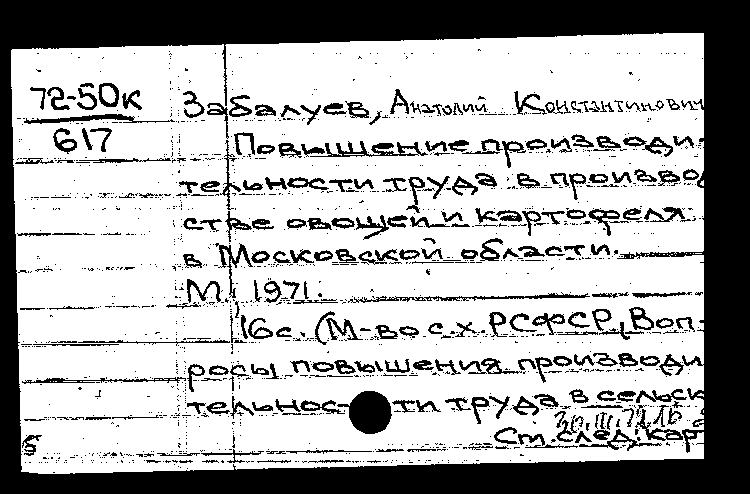 72-50к
617
Забалуев, Анатолий Константинович
Повышение производи-
тельности труда в производ
стве овощей и картофеля
в Московской области.
М., 1971.
16 с. (М-во с.х. РСФСР, Воп-
росы повышения производи
тельности труда в сельск
См. след. кар